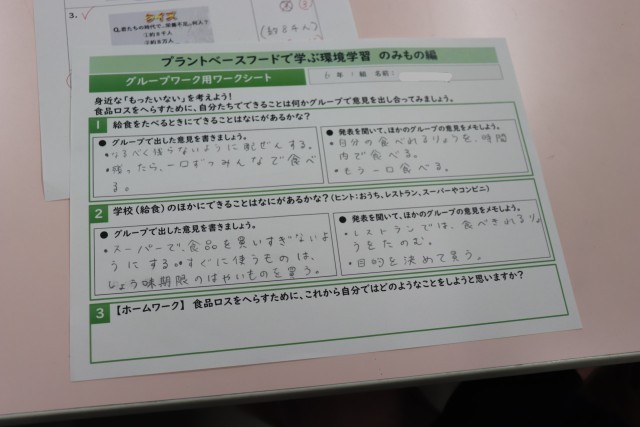 3.
クイズ
Q.君たちの時代で、栄養不足、何人？
①約8千人
②約8万人
(約8千人)
プラントベースフードで学ぶ環境学習 のみもの編
グループワーク用ワークシート
6年 1組 名前:
身近な「もったいない」を考えよう！
食品ロスをへらすために、自分たちでできることは何かグループで意見を出し合ってみましょう。
1 給食をたべるときにできることはなにがあるかな？
● グループで出した意見を書きましょう。
・なるべく残らないように配ぜんする。
・残ったら、一口ずつみんなで食べ
る。
● 発表を聞いて、ほかのグループの意見をメモしよう。
・自分の食べれるりょうを、時間
内で食べる。
・もう一口食べる。
2 学校（給食）のほかにできることはなにがあるかな？(ヒント：おうち、レストラン、スーパーやコンビニ)
● グループで出した意見を書きましょう。
・スーパーで、食品を買いすぎないよ
うにする。すぐに使うものは、
しょう味期限のはやいものを買う。
● 発表を聞いて、ほかのグループの意見をメモしよう。
・レストランでは、食べきれるりょ
うをたのむ。
・目的を決めて買う。
3 【ホームワーク】 食品ロスをへらすために、これから自分ではどのようなことをしようと思いますか？